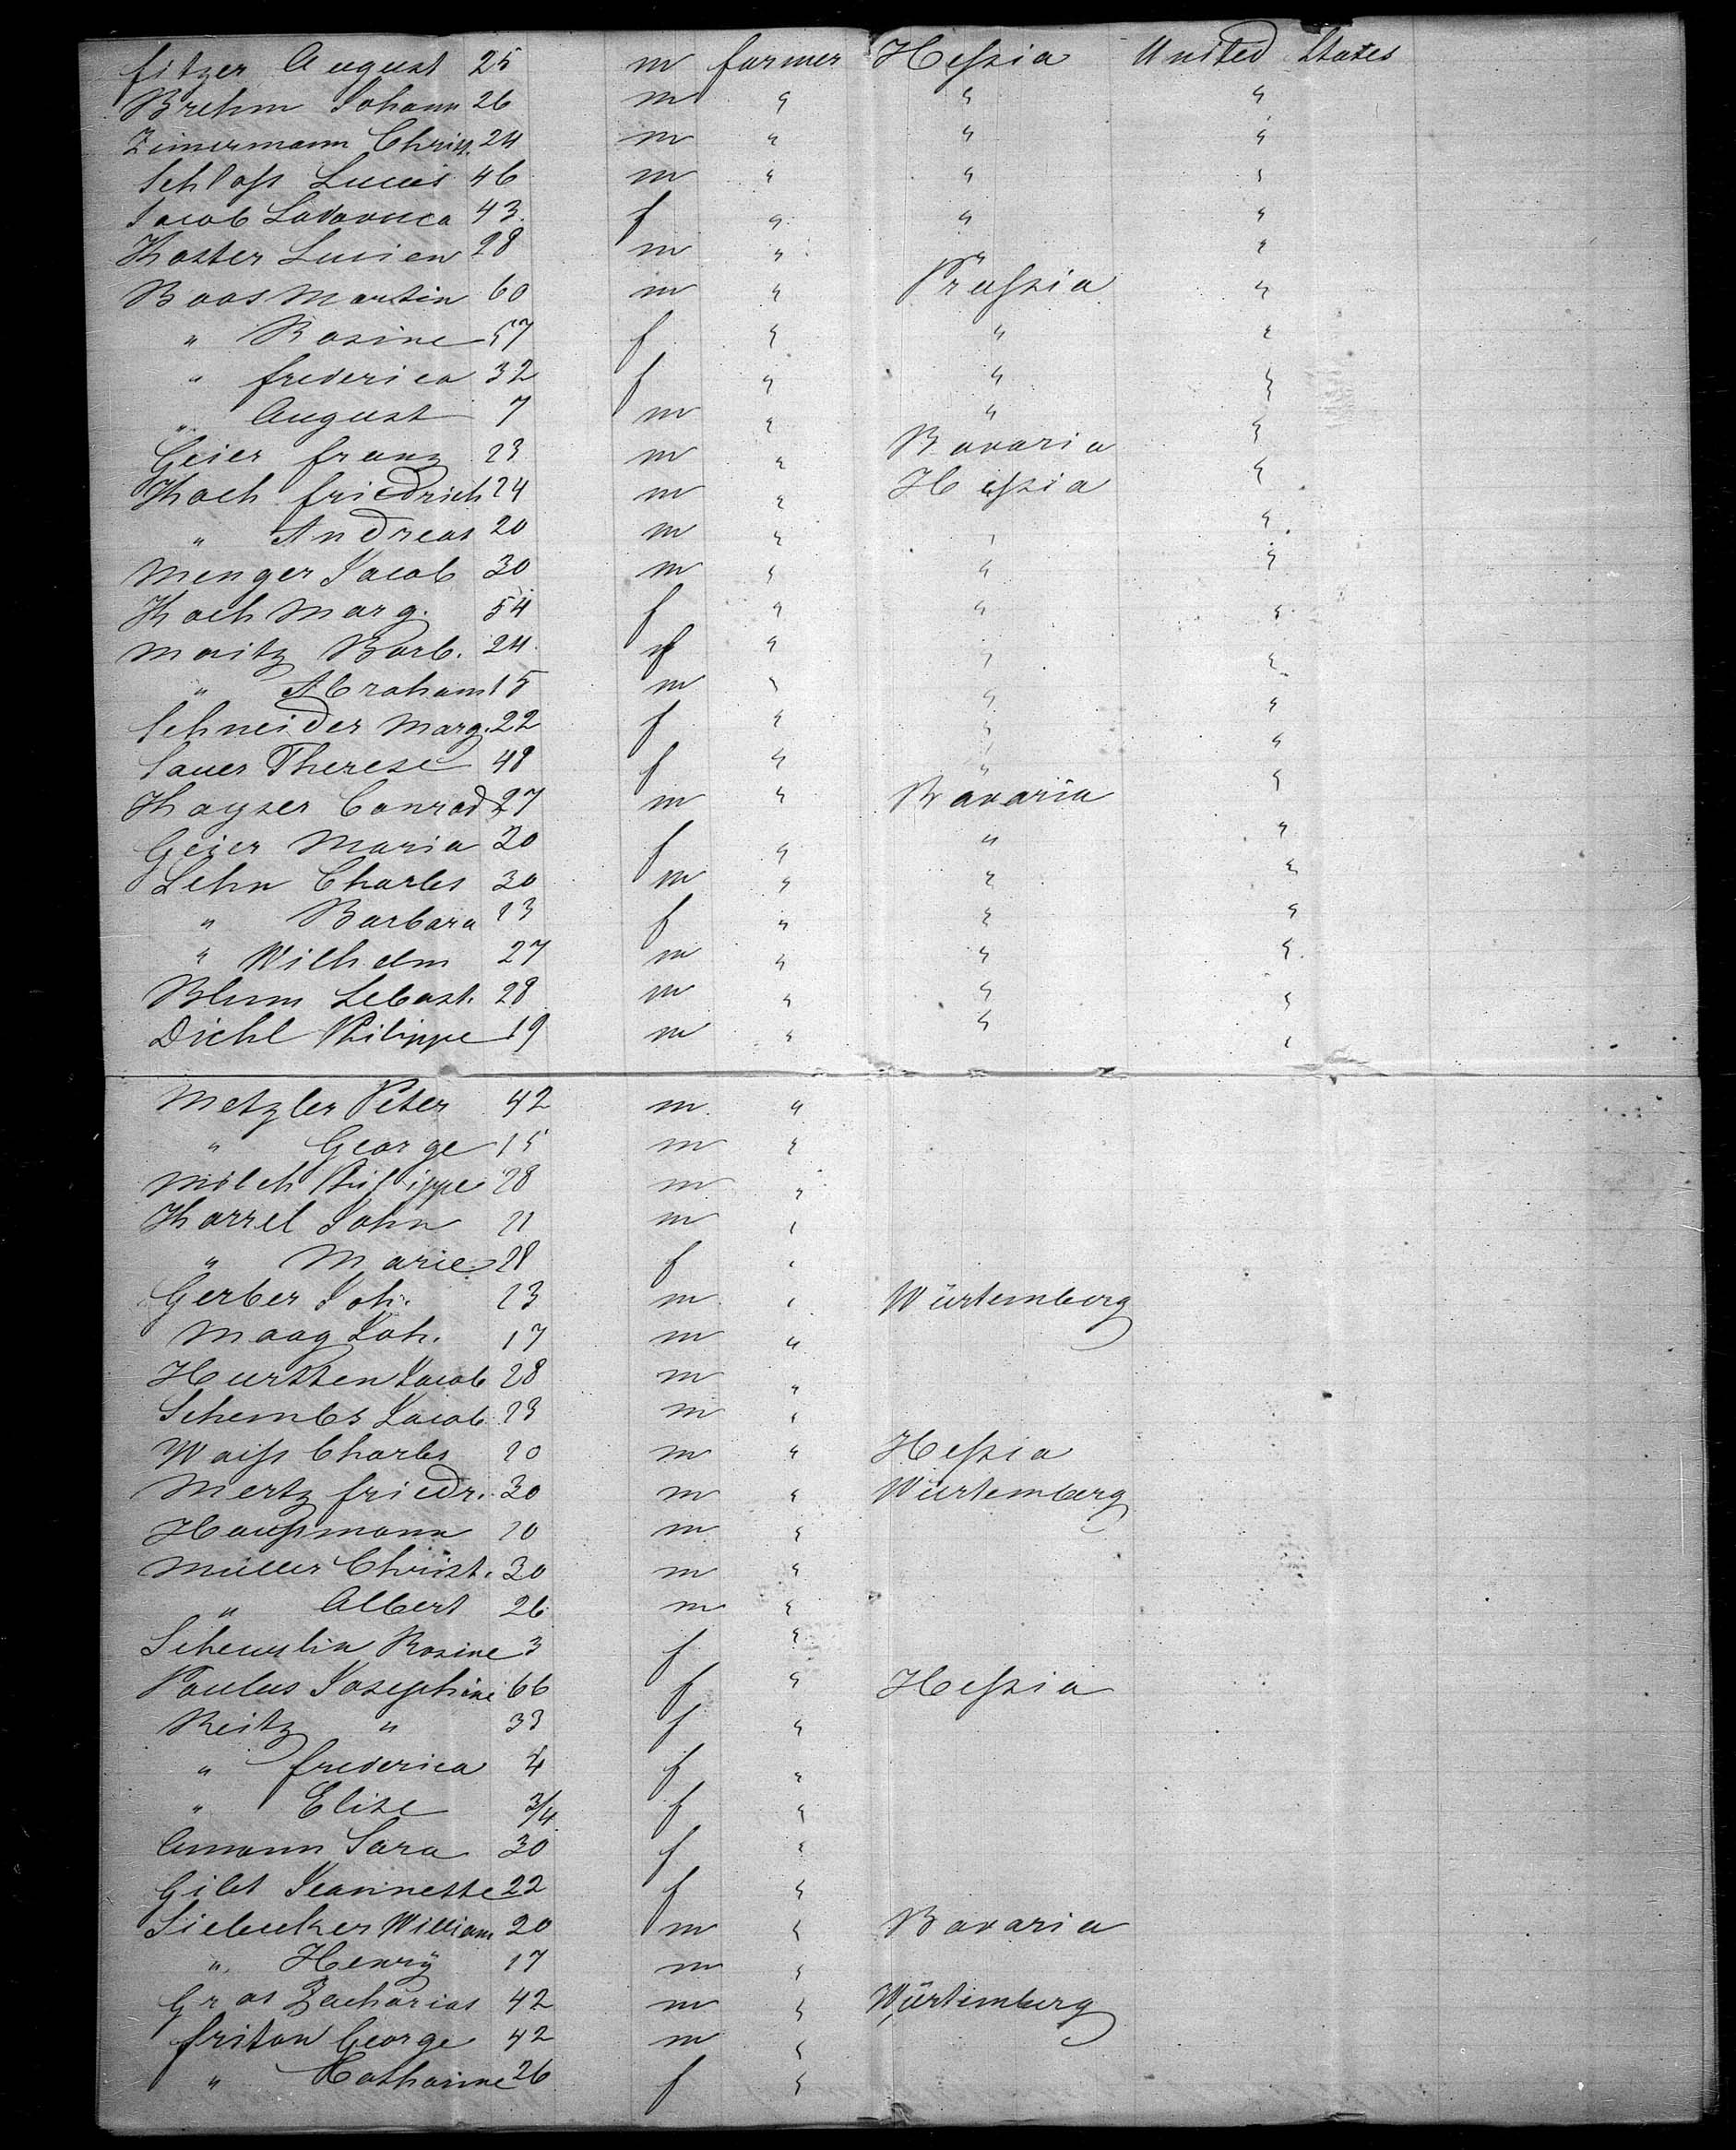 Fitzer August 25 m farmer Heſsia United States
Brehm Johann 26 m " " "
Zimermann Christ. 24 m " " "
Schloſs Lucas 46 m " " "
Jacob Ludovica 43 f " " "
Koster Lucien 28 m " " "
Boos Martin 60 m " Pruſsia "
" Rosine 57 f " " "
" Frederica 32 f " " "
" August 7 m " " "
Geier Franz 23 m " Bavaria "
Koch Friedrich 24 m " Heſsia "
" Andreas 20 m " " "
Menger Jacob 30 m " " "
Koch Marg. 54 f " " "
Moritz Barb. 24 f " " "
" Abraham 15 m " " "
Schneider Marg. 22 f " " "
Sauer Therese 48 f " " "
Kayser Conrad 27 m " Bavaria "
Geier Maria 20 f " " "
Lehn Charles 30 m " " "
" Barbara 23 f " " "
" Wilhelm 27 m " " "
Blum Sebast. 28 m " " "
Diehl Philippe 19 m " " "
Metzler Peter 42 m "
" George 15 m "
Milch Philippe 28 m "
Karrel John 21 m "
" Marie 28 f "
Gerber Joh. 23 m " Würtemberg
Maag Joh. 17 m "
Hursten Jacob 28 m "
Schembs Jacob 23 m "
Waiſs Charles 20 m " Heſsia
Mertz Friedr. 30 m " Würtemberg
Hauſsmann 20 m "
Müller Christ. 30 m "
" Albert 26 m "
Scheuslin Rosine 3 f "
Paulus Josephine 66 f " Heſsia
Reitz " 33 f "
" Frederica 4 f "
" Elise 3/4 f "
Amann Sara 30 f "
Gilet Jeannette 22 f "
Siebecker William 20 m " Bavaria
" Henry 17 m "
Gros Zacharias 42 m " Würtemberg
Friton George 42 m "
" Catharine 26 f "